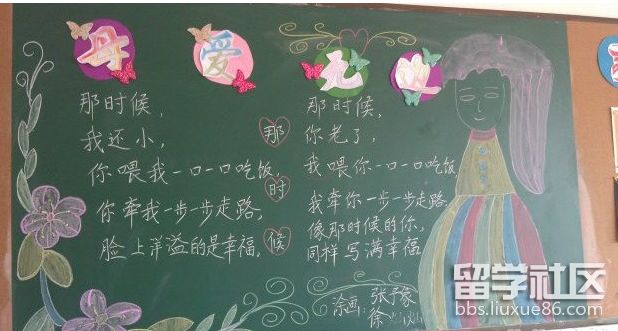 母爱无
那时候，
我还小，
你喂我一口一口吃饭，
你牵我一步一步走路，
脸上洋溢的是幸福，
那
时
候
那时候，
你老了，
我喂你一口一口吃饭
我牵你一步一步走路，
像那时候的你，
同样写满幸福
涂画：张
徐
留学社区
bbs.liuxue86.com